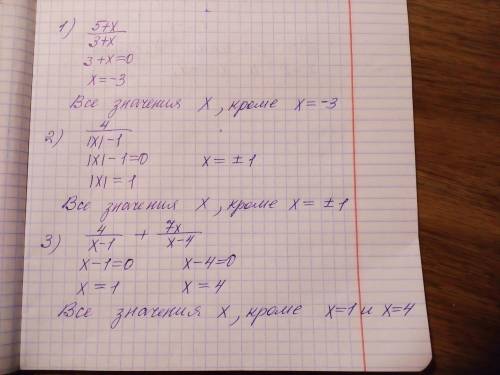 1) 5+x / 3+x
3+x=0
x=-3
Все значения x, кроме x=-3
2) 4 / |x|-1
|x|-1=0 x=±1
|x|=1
Все значения x, кроме x=±1
3) 4 / x-1 + 7x / x-4
x-1=0 x-4=0
x=1 x=4
Все значения x, кроме x=1 и x=4